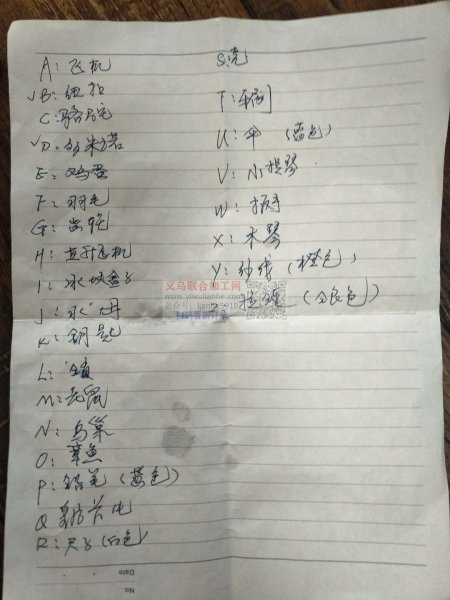 A: 飞机
√B: 纽扣
C: 骆驼
√D: 多米诺
E: 鸡蛋
F: 羽毛
G: 齿轮
H: 直升飞机
I: 冰块盒子
J: 水母
K: 钥匙
L: 锁
M: 老鼠
N: 鸟巢
O: 章鱼
P: 铅笔 (蓝色)
Q
R: 尺子 (白色)
S: 壳
T: 车厢
U: 伞 (蓝色)
V: 小提琴
W: 扳手
X: 木琴
Y: 纱线 (橙色)
Z: 拉链 (银色)
义乌联合加工网
www.yiwulianhe.com
扫码看新订单
Date
No.